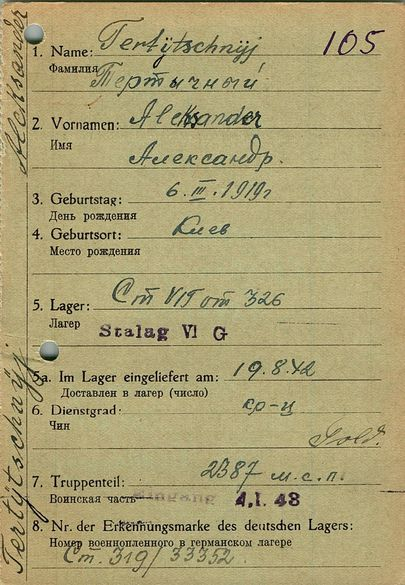 105
1. Name: Tertÿtschnÿj
Фамилия Тертычный
2. Vornamen: Aleksander
Имя
Александр.
3. Geburtstag: 6. III. 1919г
День рождения
4. Geburtsort: Киев
Место рождения
5. Lager: Ст VI от 326
Лагерь
Stalag VI G
5a. Im Lager eingeliefert am: 19.8.42
Доставлен в лагерь (число)
6. Dienstgrad: кр-ц
Чин
Sold.
7. Truppenteil: 2387 м.с.п.
Воинская часть Eingang 4.1.43
8. Nr. der Erkennungsmarke des deutschen Lagers:
Номер военнопленного в германском лагере
Ст. 319/ 33352
Tertÿtschnÿj Aleksander